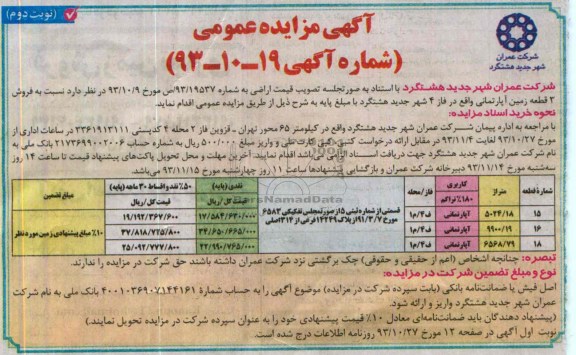 (نوبت دوم)
آگهی مزایده عمومی
(شماره آگهی ۱۹-۱۰-۹۳)
شرکت عمران
شهر جدید هشتگرد
شرکت عمران شهر جدید هشتگرد با استناد به صورتجلسه تصویب قیمت اراضی به شماره ۹۳/۱۹۵۳۷/ص مورخ ۹۳/۱۰/۹ در نظر دارد نسبت به فروش
۳ قطعه زمین آپارتمانی واقع در فاز ۴ شهر جدید هشتگرد با مبلغ پایه به شرح ذیل از طریق مزایده عمومی اقدام نماید.
نحوه خرید اسناد مزایده:
با مراجعه به اداره پیمان شرکت عمران شهر جدید هشتگرد واقع در کیلومتر ۶۵ محور تهران ـ قزوین فاز ۲ محله ۴ کدپستی ۳۳۶۱۹۱۳۱۱۱ در ساعات اداری از
مورخ ۹۳/۱۰/۲۷ لغایت ۹۳/۱۱/۴ در مقابل ارائه درخواست کتبی، کپی کارت ملی و واریز مبلغ ۵۰۰/۰۰۰ ریال به شماره حساب ۲۱۷۳۶۹۹۰۰۲۰۰۶ بانک ملی به
نام شرکت عمران شهر جدید هشتگرد جهت دریافت اسناد اوراقی می‌باشد اقدام نمایید. آخرین مهلت و محل تحویل پاکت‌های پیشنهاد قیمت تا ساعت ۱۴ روز
سه‌شنبه مورخ ۹۳/۱۱/۱۴ دبیرخانه شرکت عمران و بازگشایی پیشنهادها ساعت ۱۱ روز چهارشنبه مورخ ۹۳/۱۱/۱۵ می‌باشد.
شماره قطعه متراژ کاربری ۱۸۰٪ تراکم فاز/محله قسمتی از شماره ثبتی ۵ از صورتمجلس تفکیکی ۶۵۸۳ مورخ ۹۱/۳/۷ از پلاک ۱۲۲۴۹ فرعی از ۳۱۴ اصلی نقدی (پایه) قیمت کل/ریال ۵۰٪ نقد و اقساط ۳۰ ماهه (پایه) قیمت کل/ریال مبلغ تضمین
۱۵ ۵۰۲۴/۱۸ آپارتمانی ف۴/م۱ ۱۷/۵۸۴/۶۳۰/۰۰۰ ۱۹/۱۹۲/۳۶۷/۶۰۰
۱۶ ۹۹۰۰/۱۹ آپارتمانی ف۴/م۱ ۳۴/۶۵۰/۶۶۵/۰۰۰ ۳۷/۸۱۸/۷۲۵/۸۰۰ ۱۰٪ مبلغ پیشنهادی زمین مورد نظر
۱۸ ۶۵۶۸/۷۹ آپارتمانی ف۴/م۱ ۲۲/۹۹۰/۷۶۵/۰۰۰ ۲۵/۰۹۲/۷۷۷/۸۰۰
تبصره: چنانچه اشخاص (اعم از حقیقی و حقوقی) چک برگشتی نزد شرکت عمران داشته باشند حق شرکت در مزایده را ندارند.
نوع و مبلغ تضمین شرکت در مزایده:
اصل فیش یا ضمانت‌نامه بانکی (بابت سپرده شرکت در مزایده) موضوع آگهی را به حساب شمارۀ ۴۰۰۱۰۳۶۹۰۷۱۴۴۱۶۱ بانک ملی به نام شرکت
عمران شهر جدید هشتگرد واریز و ارائه شود.
(پیشنهاد دهندگان باید ضمانت‌نامه‌ای معادل ۱۰٪ قیمت پیشنهادی خود را به عنوان سپرده شرکت در مزایده تحویل نمایند.)
نوبت اول آگهی در صفحه ۱۲ مورخ ۹۳/۱۰/۲۷ روزنامه اطلاعات درج شده است.